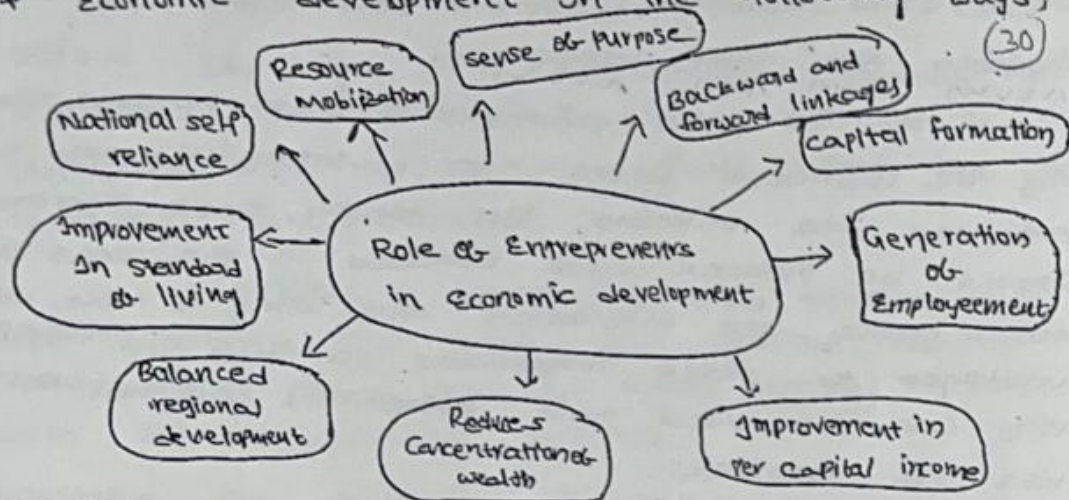 Economic development on the following ways,
30
Resource
mobilization
sense of purpose
Backward and
forward linkages
capital formation
National self
reliance
Improvement
In standard
of living
Role of Entrepreneurs
in Economic development
Generation
of
Employeement
Balanced
regional
development
Reduces
Concentration of
wealth
Improvement in
Per capital income